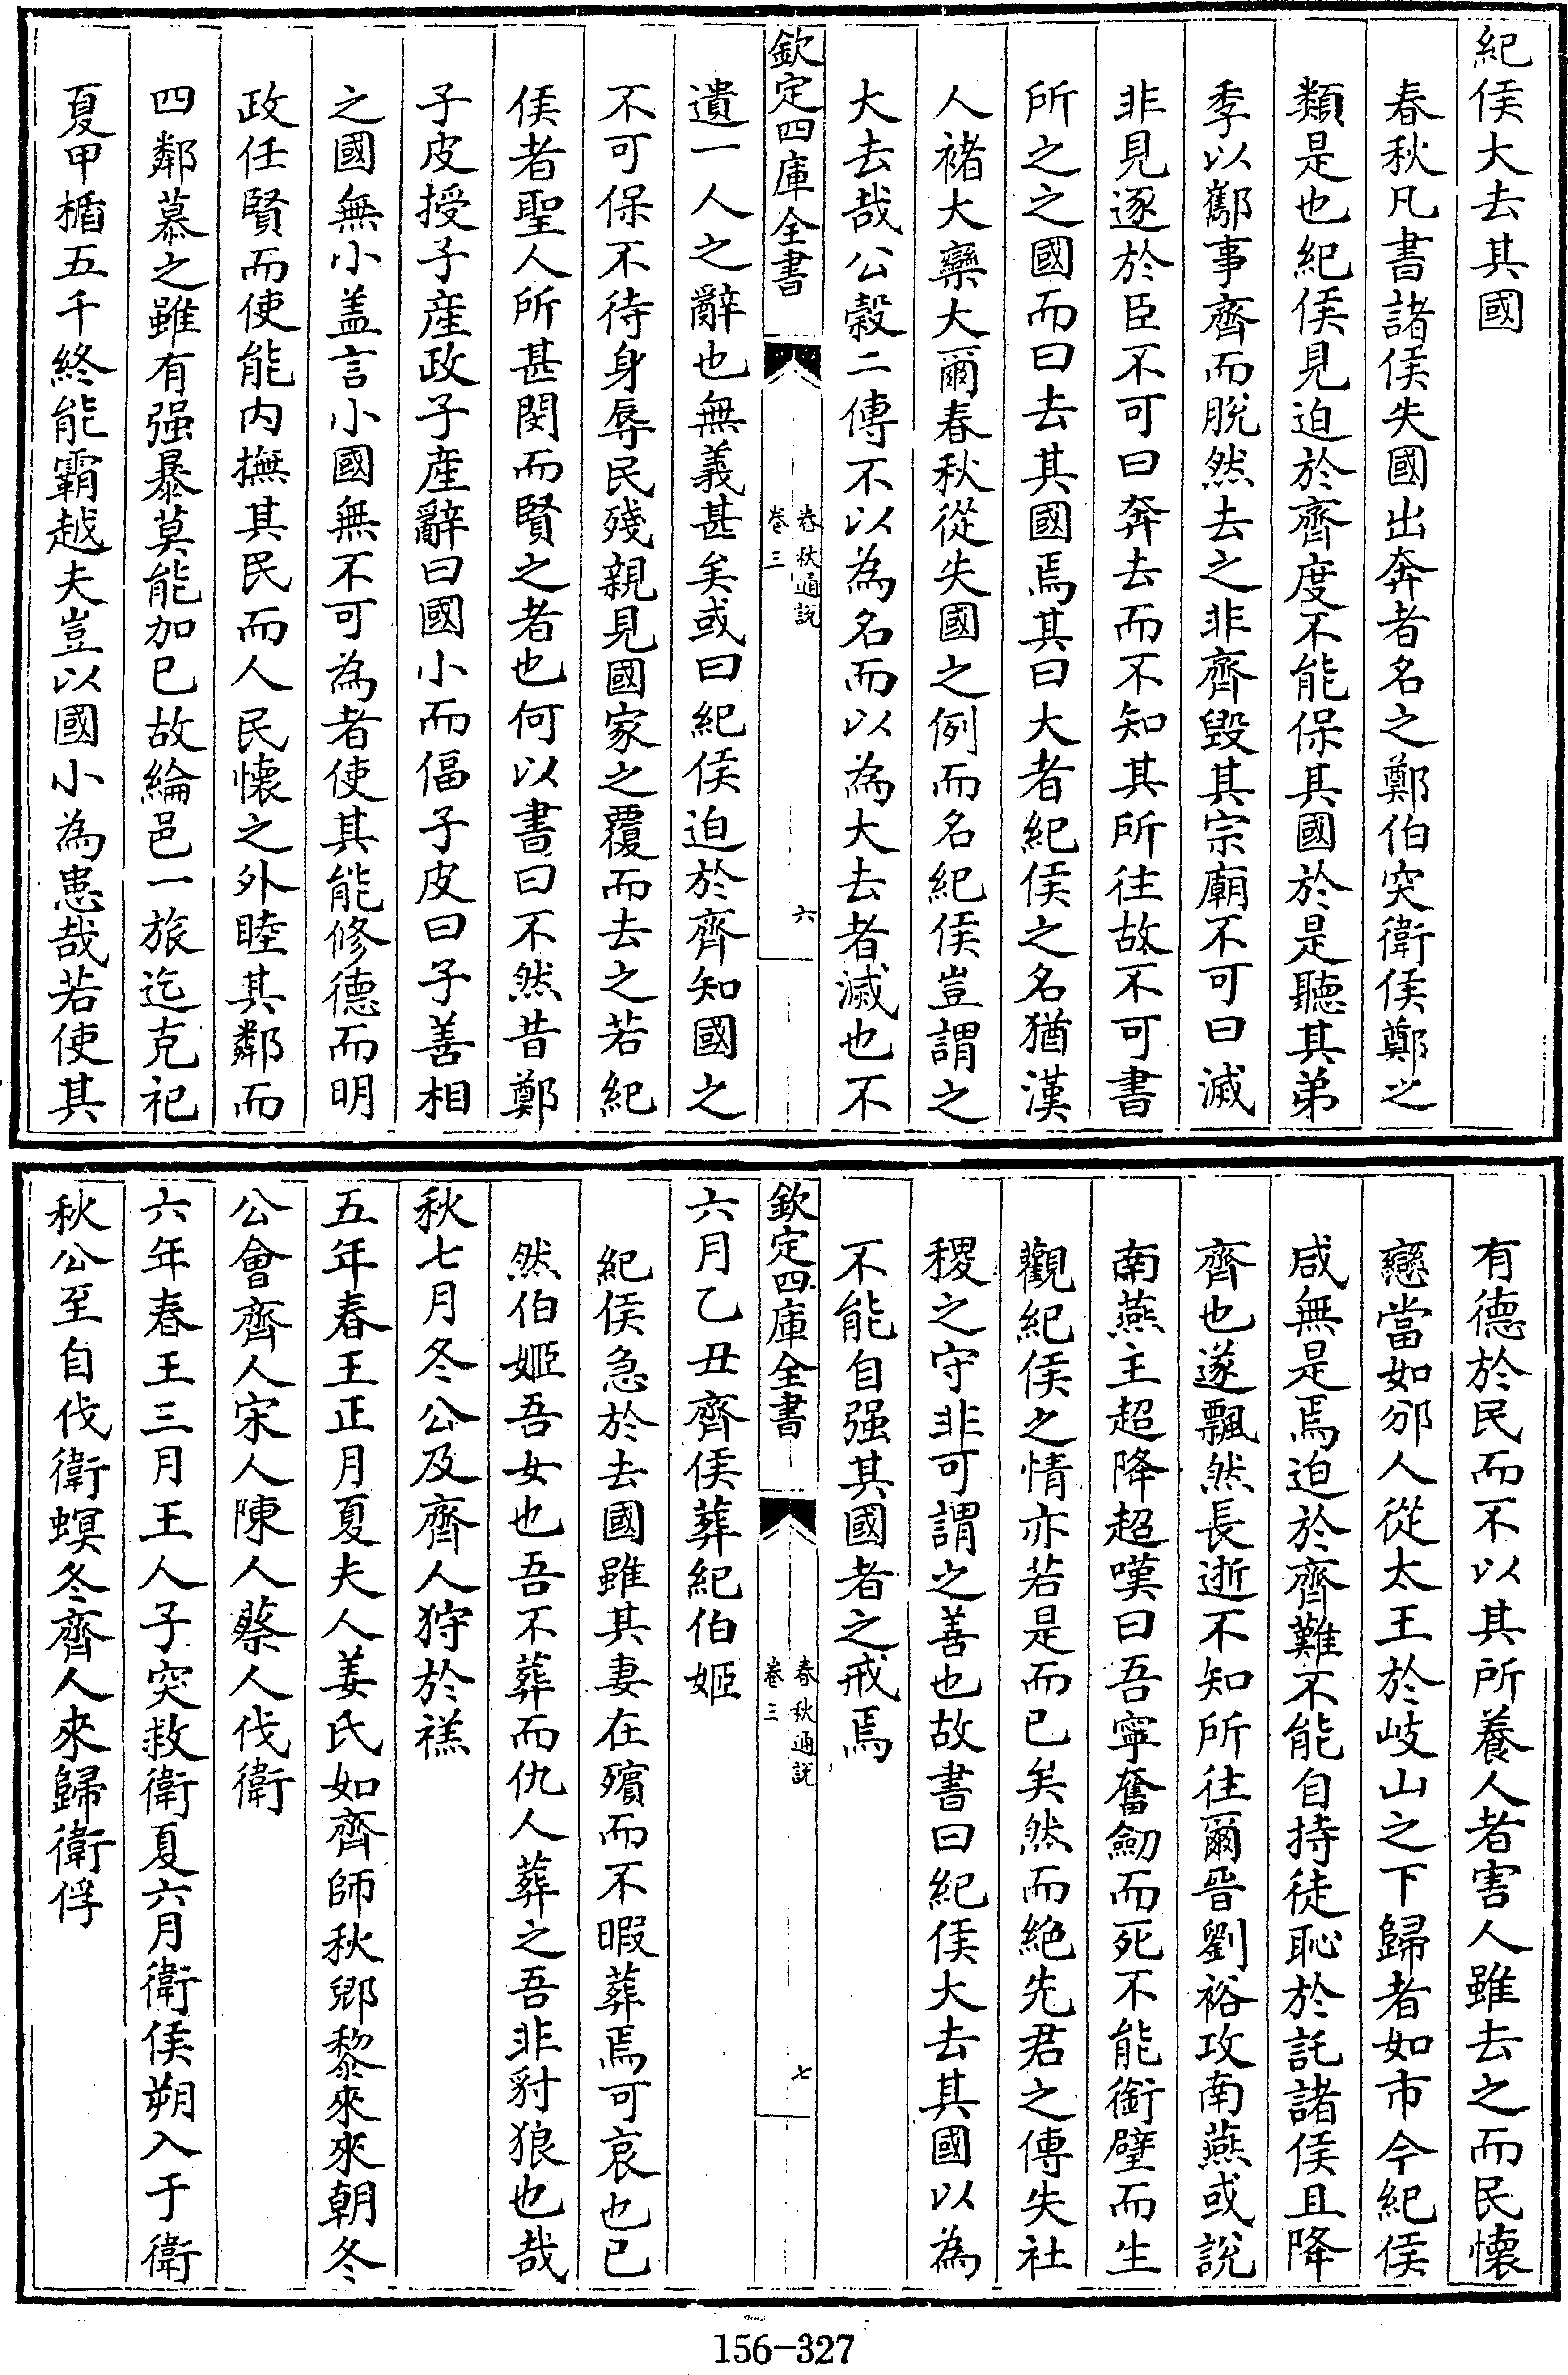 紀侯大去其國
春秋凡書諸侯失國出奔者名之鄭伯突衛侯鄭之
類是也紀侯見迫於齊度不能保其國於是聽其弟
季以酅事齊而脫然去之非齊毀其宗廟不可曰滅
非見逐於臣不可曰奔去而不知其所往故不可書
所之之國而曰去其國焉其曰大者紀侯之名猶漢
人褚大欒大爾春秋從失國之例而名紀侯豈謂之
大去哉公穀二傳不以為名而以為大去者滅也不
欽定四庫全書
春秋通說
卷三
六
遺一人之辭也無義甚矣或曰紀侯迫於齊知國之
不可保不待身辱民殘親見國家之覆而去之若紀
侯者聖人所甚閔而賢之者也何以書曰不然昔鄭
子皮授子產政子產辭曰國小而偪子皮曰子善相
之國無小盖言小國無不可為者使其能修德而明
政任賢而使能内撫其民而人民懷之外睦其鄰而
四鄰慕之雖有强暴莫能加已故綸邑一旅迄克祀
夏甲楯五千終能霸越夫豈以國小為患哉若使其
有德於民而不以其所養人者害人雖去之而民懷
戀當如邠人從太王於岐山之下歸者如市今紀侯
咸無是焉迫於齊難不能自持徒恥於託諸侯且降
齊也遂飄然長逝不知所往爾晉劉裕攻南燕或說
南燕主超降超嘆曰吾寧奮劒而死不能銜璧而生
觀紀侯之情亦若是而已矣然而絶先君之傳失社
稷之守非可謂之善也故書曰紀侯大去其國以為
不能自强其國者之戒焉
欽定四庫全書
春秋通說
卷三
七
六月乙丑齊侯葬紀伯姬
紀侯急於去國雖其妻在殯而不暇葬焉可哀也已
然伯姬吾女也吾不葬而仇人葬之吾非豺狼也哉
秋七月冬公及齊人狩於禚
五年春王正月夏夫人姜氏如齊師秋郳黎來來朝冬
公會齊人宋人陳人蔡人伐衛
六年春王三月王人子突救衛夏六月衛侯朔入于衛
秋公至自伐衛螟冬齊人來歸衛俘
156-327